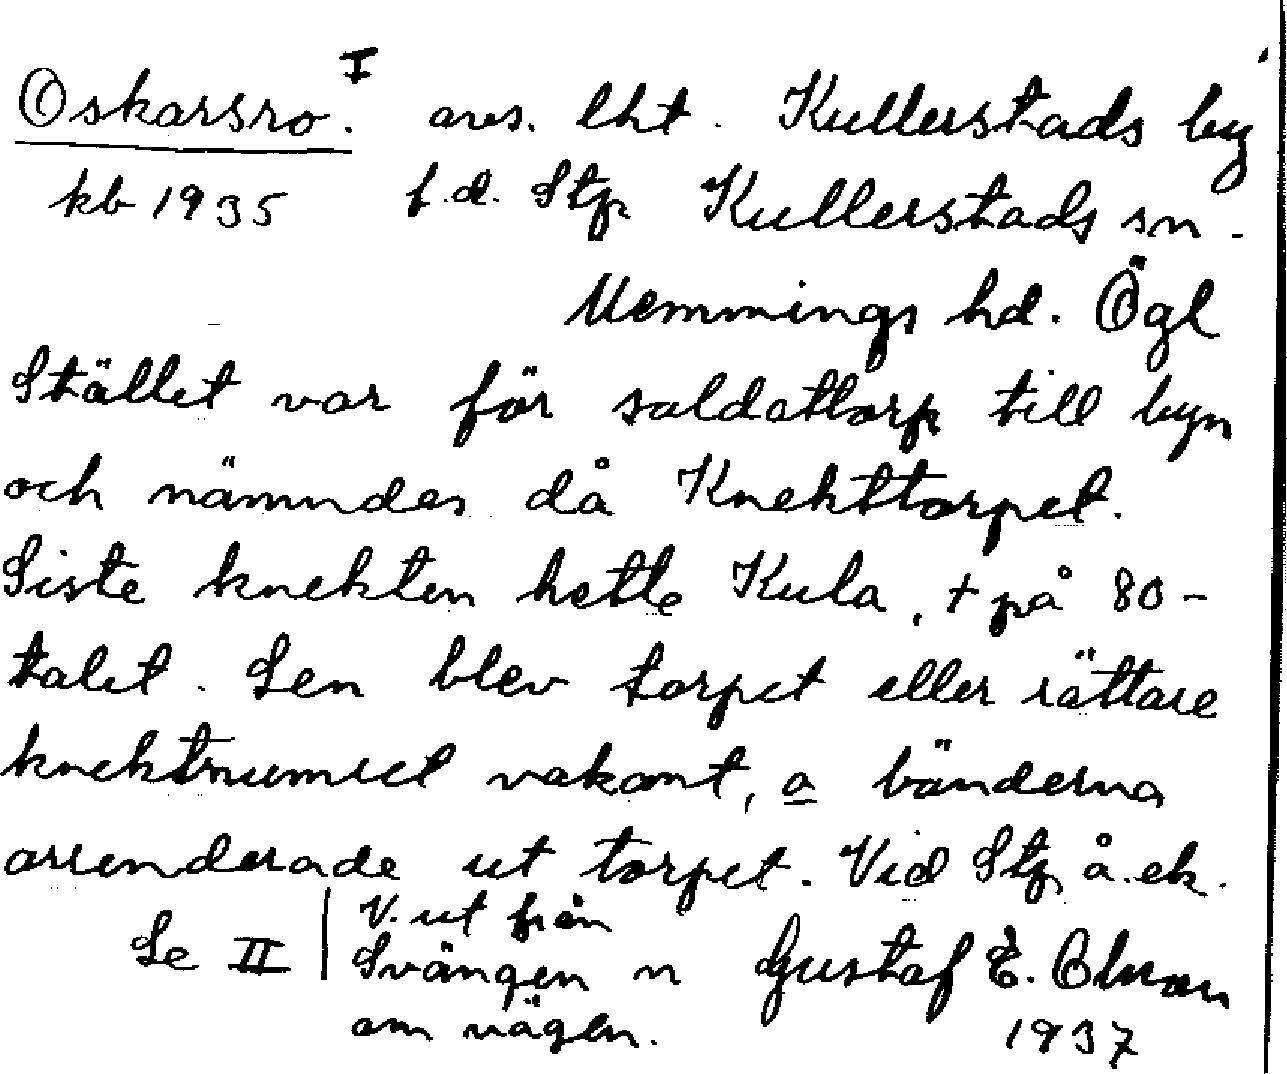 Oskarsro. I avs. lht. Kullerstads by
kb 1935 f.d. Stp Kullerstads sn.
Memmings hd. Ögl
Stället var för soldattorp till byn
och nämndes då Knekttorpet.
Siste knekten hette Kula, + på 80-
talet. Sen blev torpet eller rättare
knektnumret vakant, a bönderna
arrenderade ut torpet. Vid Stp å. ek.
Se II
V. ut från
Svängen n
om vägen.
Gustaf E.
1937